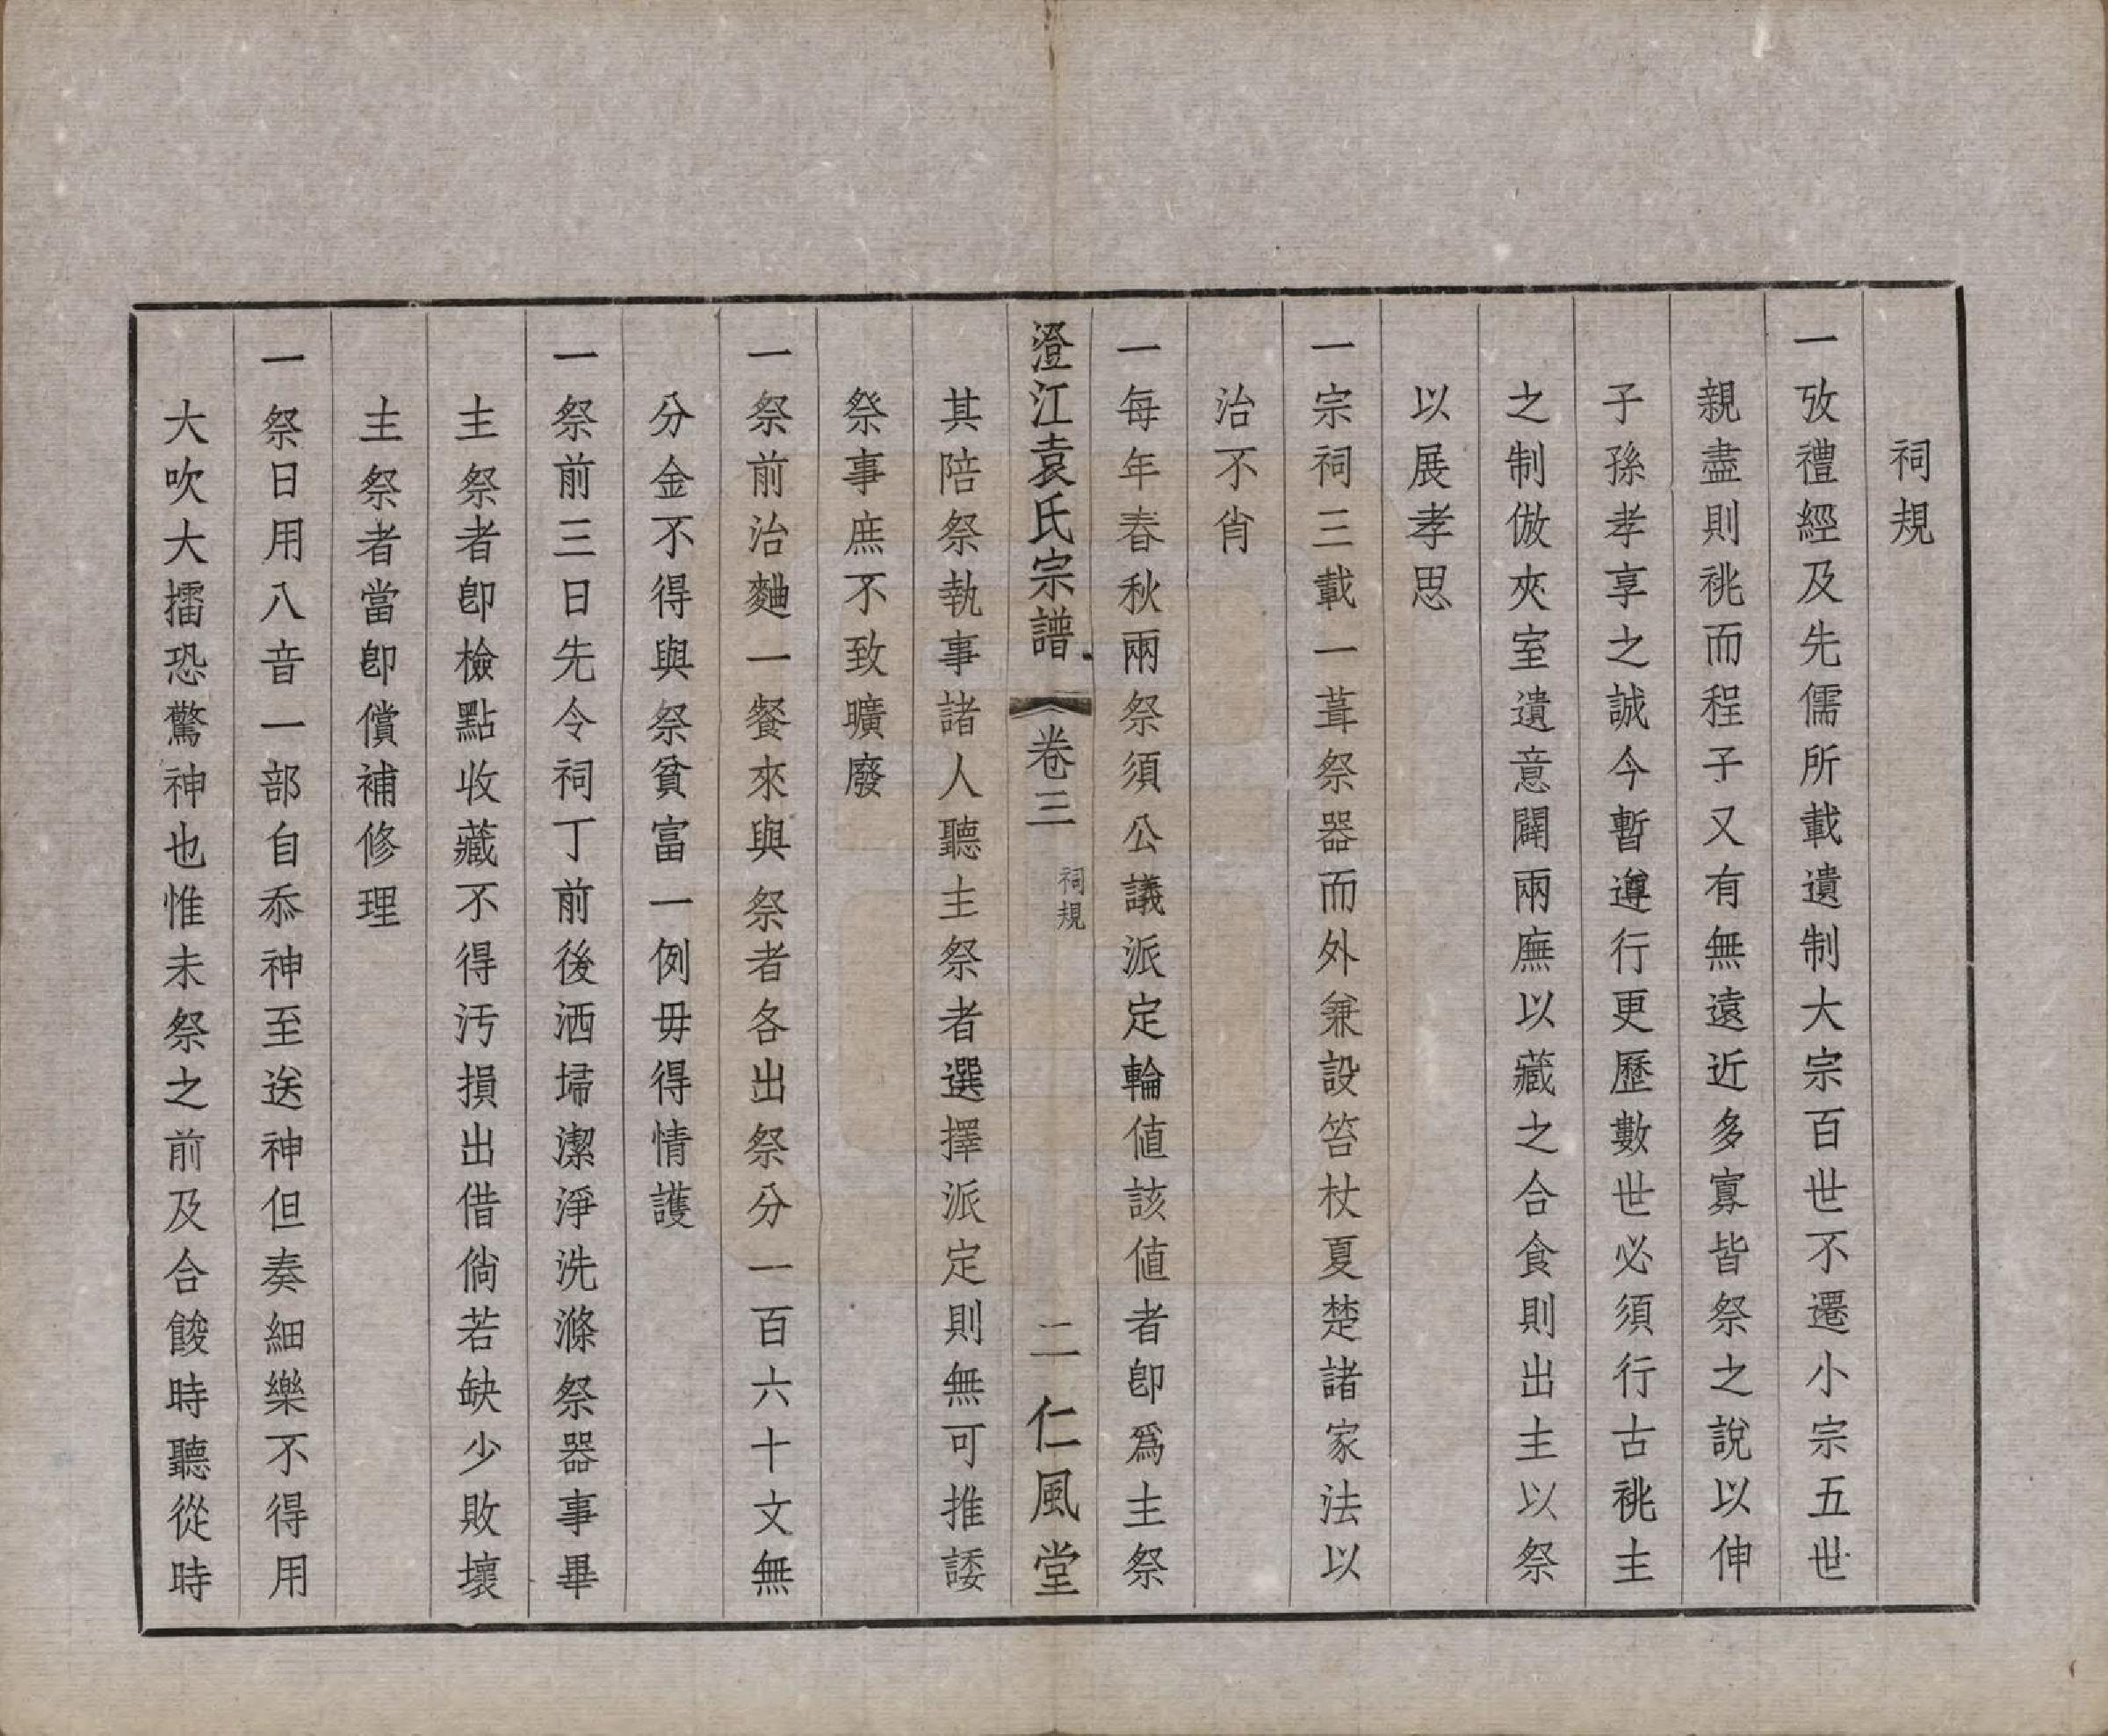 祠規
一攷禮經及先儒所載遺制大宗百世不遷小宗五世
親盡則祧而程子又有無遠近多寡皆祭之說以伸
子孫孝享之誠今暫遵行更歷數世必須行古祧主
之制倣夾室遺意闢兩廡以藏之合食則出主以祭
以展孝思
一宗祠三載一葺祭器而外兼設笞杖夏楚諸家法以
治不肖
一每年春秋兩祭須公議派定輪値該値者卽爲主祭
澄江袁氏宗譜
卷三
祠規
二
仁風堂
其陪祭執事諸人聽主祭者選擇派定則無可推諉
祭事庶不致曠廢
一祭前治麯一餐來與祭者各出祭分一百六十文無
分金不得與祭貧富一例毋得情護
一祭前三日先令祠丁前後洒埽潔淨洗滌祭器事畢
主祭者卽檢點收藏不得汚損出借倘若缺少敗壞
主祭者當卽償補修理
一祭日用八音一部自忝神至送神但奏細樂不得用
大吹大擂恐驚神也惟未祭之前及合餕時聽從時